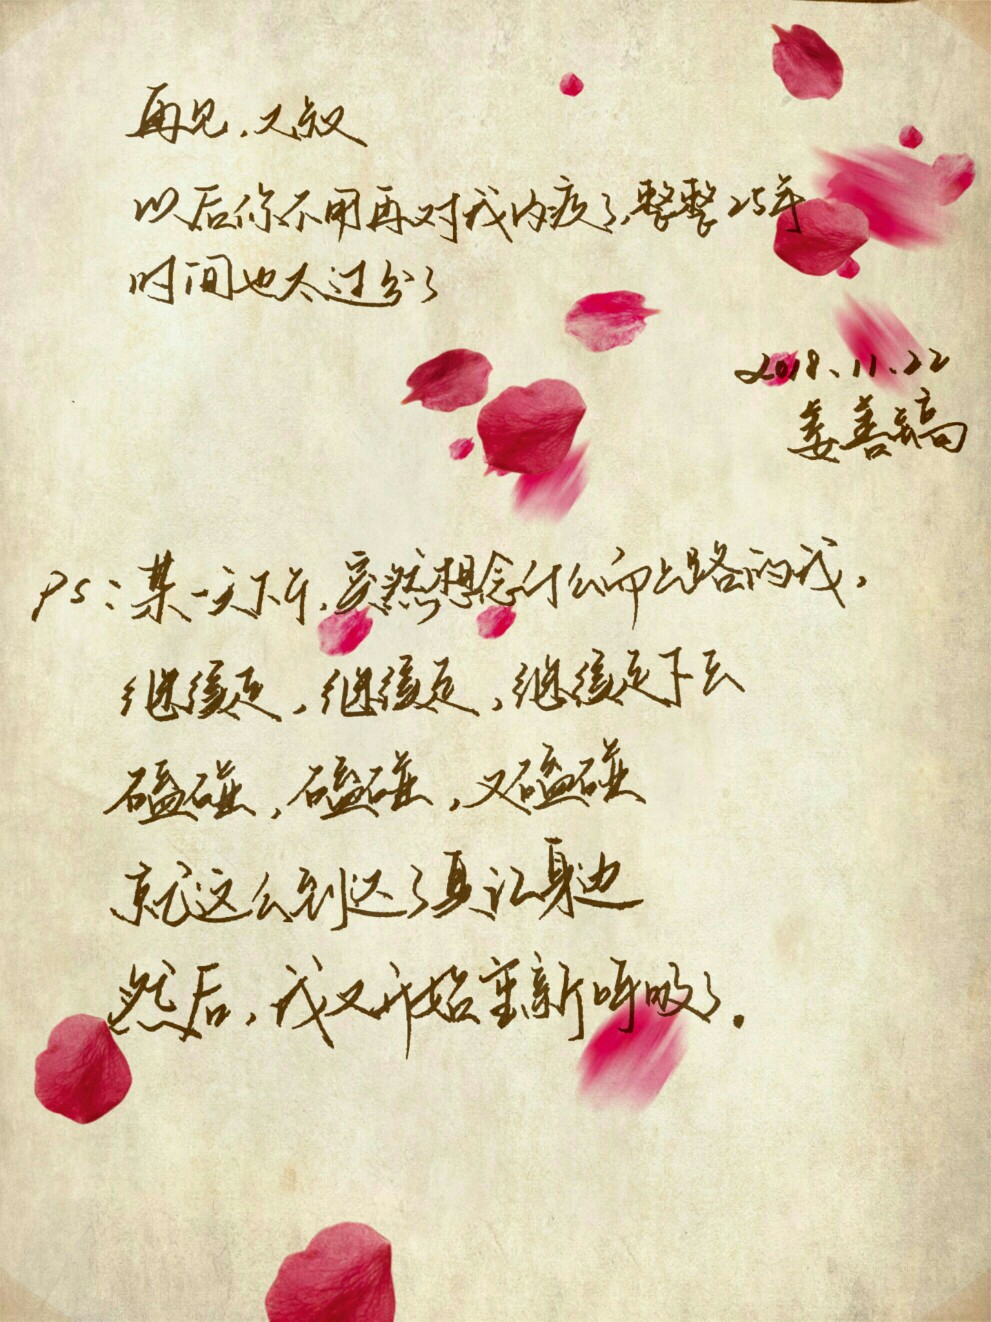 再见,大叔
以后你不用再对我内疚了,整整25年
时间也太过分了
2018.11.22
姜善镐
PS:某一天下午,突然想念什么而上路的我,
继续走,继续走,继续走下去
磕碰,磕碰,又磕碰
就这么到达了真让身边
然后,我又开始重新呼吸了.